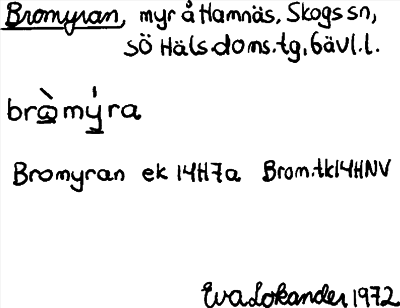 Bromyran, myr å Hamnäs, Skogs sn,
SÖ Häls.doms.tg, Gävl.l.
bròmýra
Bromyran ek 14H7a Brom.tk14HNV
Eva Lokander 1972